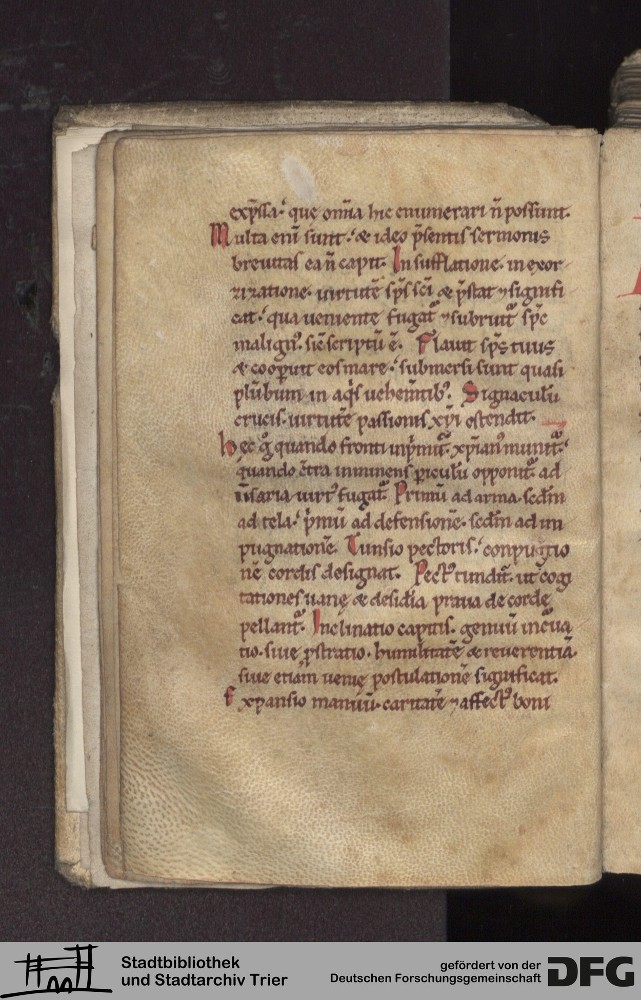 exp̄ssa. que om̄ia hic enumerari n̄ possunt.
Multa eni̅ sunt. & ideo p̄sentis sermonis
breuitas ea n̄ capit. Insufflatione. in exor
zizatione. uirtutē sp̄s sc̄i & p̄stat ⁊ signifi
cat. qua ueniente fugat᷑ ⁊ subruit᷑ sp̄c
malignꝰ. sic̄ scriptū ē. Flauit sp̄s tuus
& coop̄uit eos mare. submersi sunt quasi
plūbum in aq̄s uehem̄tibꝰ. Signaculū
crucis. uirtutē passionis xp̄i ostendit.
Hec g̊ quando fronti inp̄mit᷑. xp̄ianꝰ munit᷑.
quando c̄tra inminens p̄iculū opponit᷑ ad
ū̄saria uirtꝰ fugat᷑. Primū ad arma. sed̄m
ad tela. p̄mū ad defensionē. sed̄m ad im
pugnationē. Tunsio pectoris. conpu̅ctio
nē cordis designat. Pectꝰ tundit᷑. ut cogi
tationes uanę & desidia praua de corde
pellant᷑. Inclinatio capitis. genuū incurua
tio. siue p̄stratio. humilitatē & reuerentiā.
siue etiam uenię postulationē significat.
Expansio manuū. caritatē ⁊ affectꝰ boni
Stadtbibliothek
und Stadtarchiv Trier
gefördert von der
Deutschen Forschungsgemeinschaft
DFG